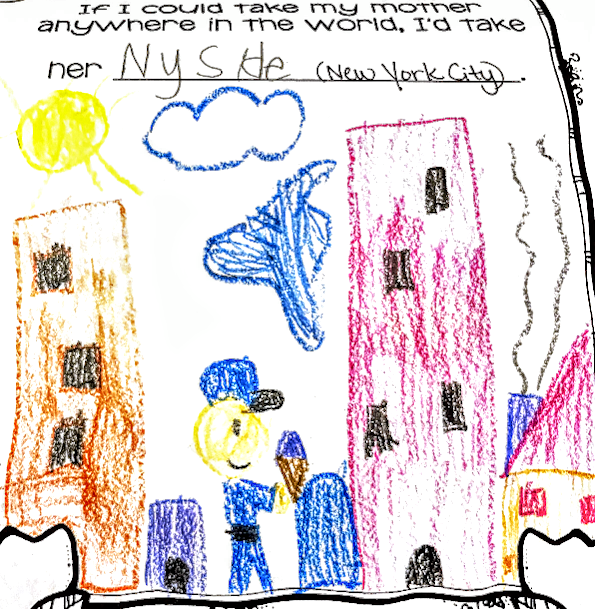 If I could take my mother
anywhere in the world, I'd take
her (New York City).